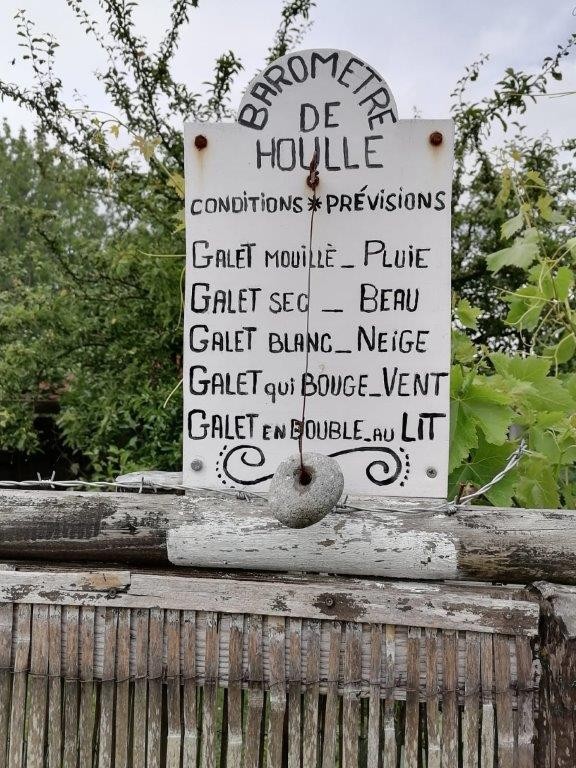 BAROMETRE
DE
HOULLE
CONDITIONS * PRÉVISIONS
GALET MOUILLÈ_ PLUIE
GALET SEC _ BEAU
GALET BLANC_ NEIGE
GALET qui BOUGE_VENT
GALET EN DOUBLE_AU LIT